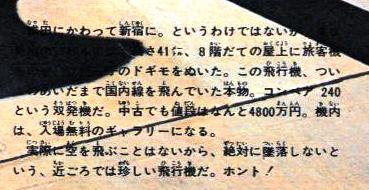 田にかわって新宿に。というわけではないが
さ41㍍、8階だての屋上に旅客機
のドギモをぬいた。この飛行機、つい
のあいだまで国内線を飛んでいた本物。コンベア 240
という双発機だ。中古でも値段はなんと4800万円。機内
は、入場無料のギャラリーになる。
実際に空を飛ぶことはないから、絶対に墜落しないと
いう、近ごろでは珍しい飛行機だ。ホント！